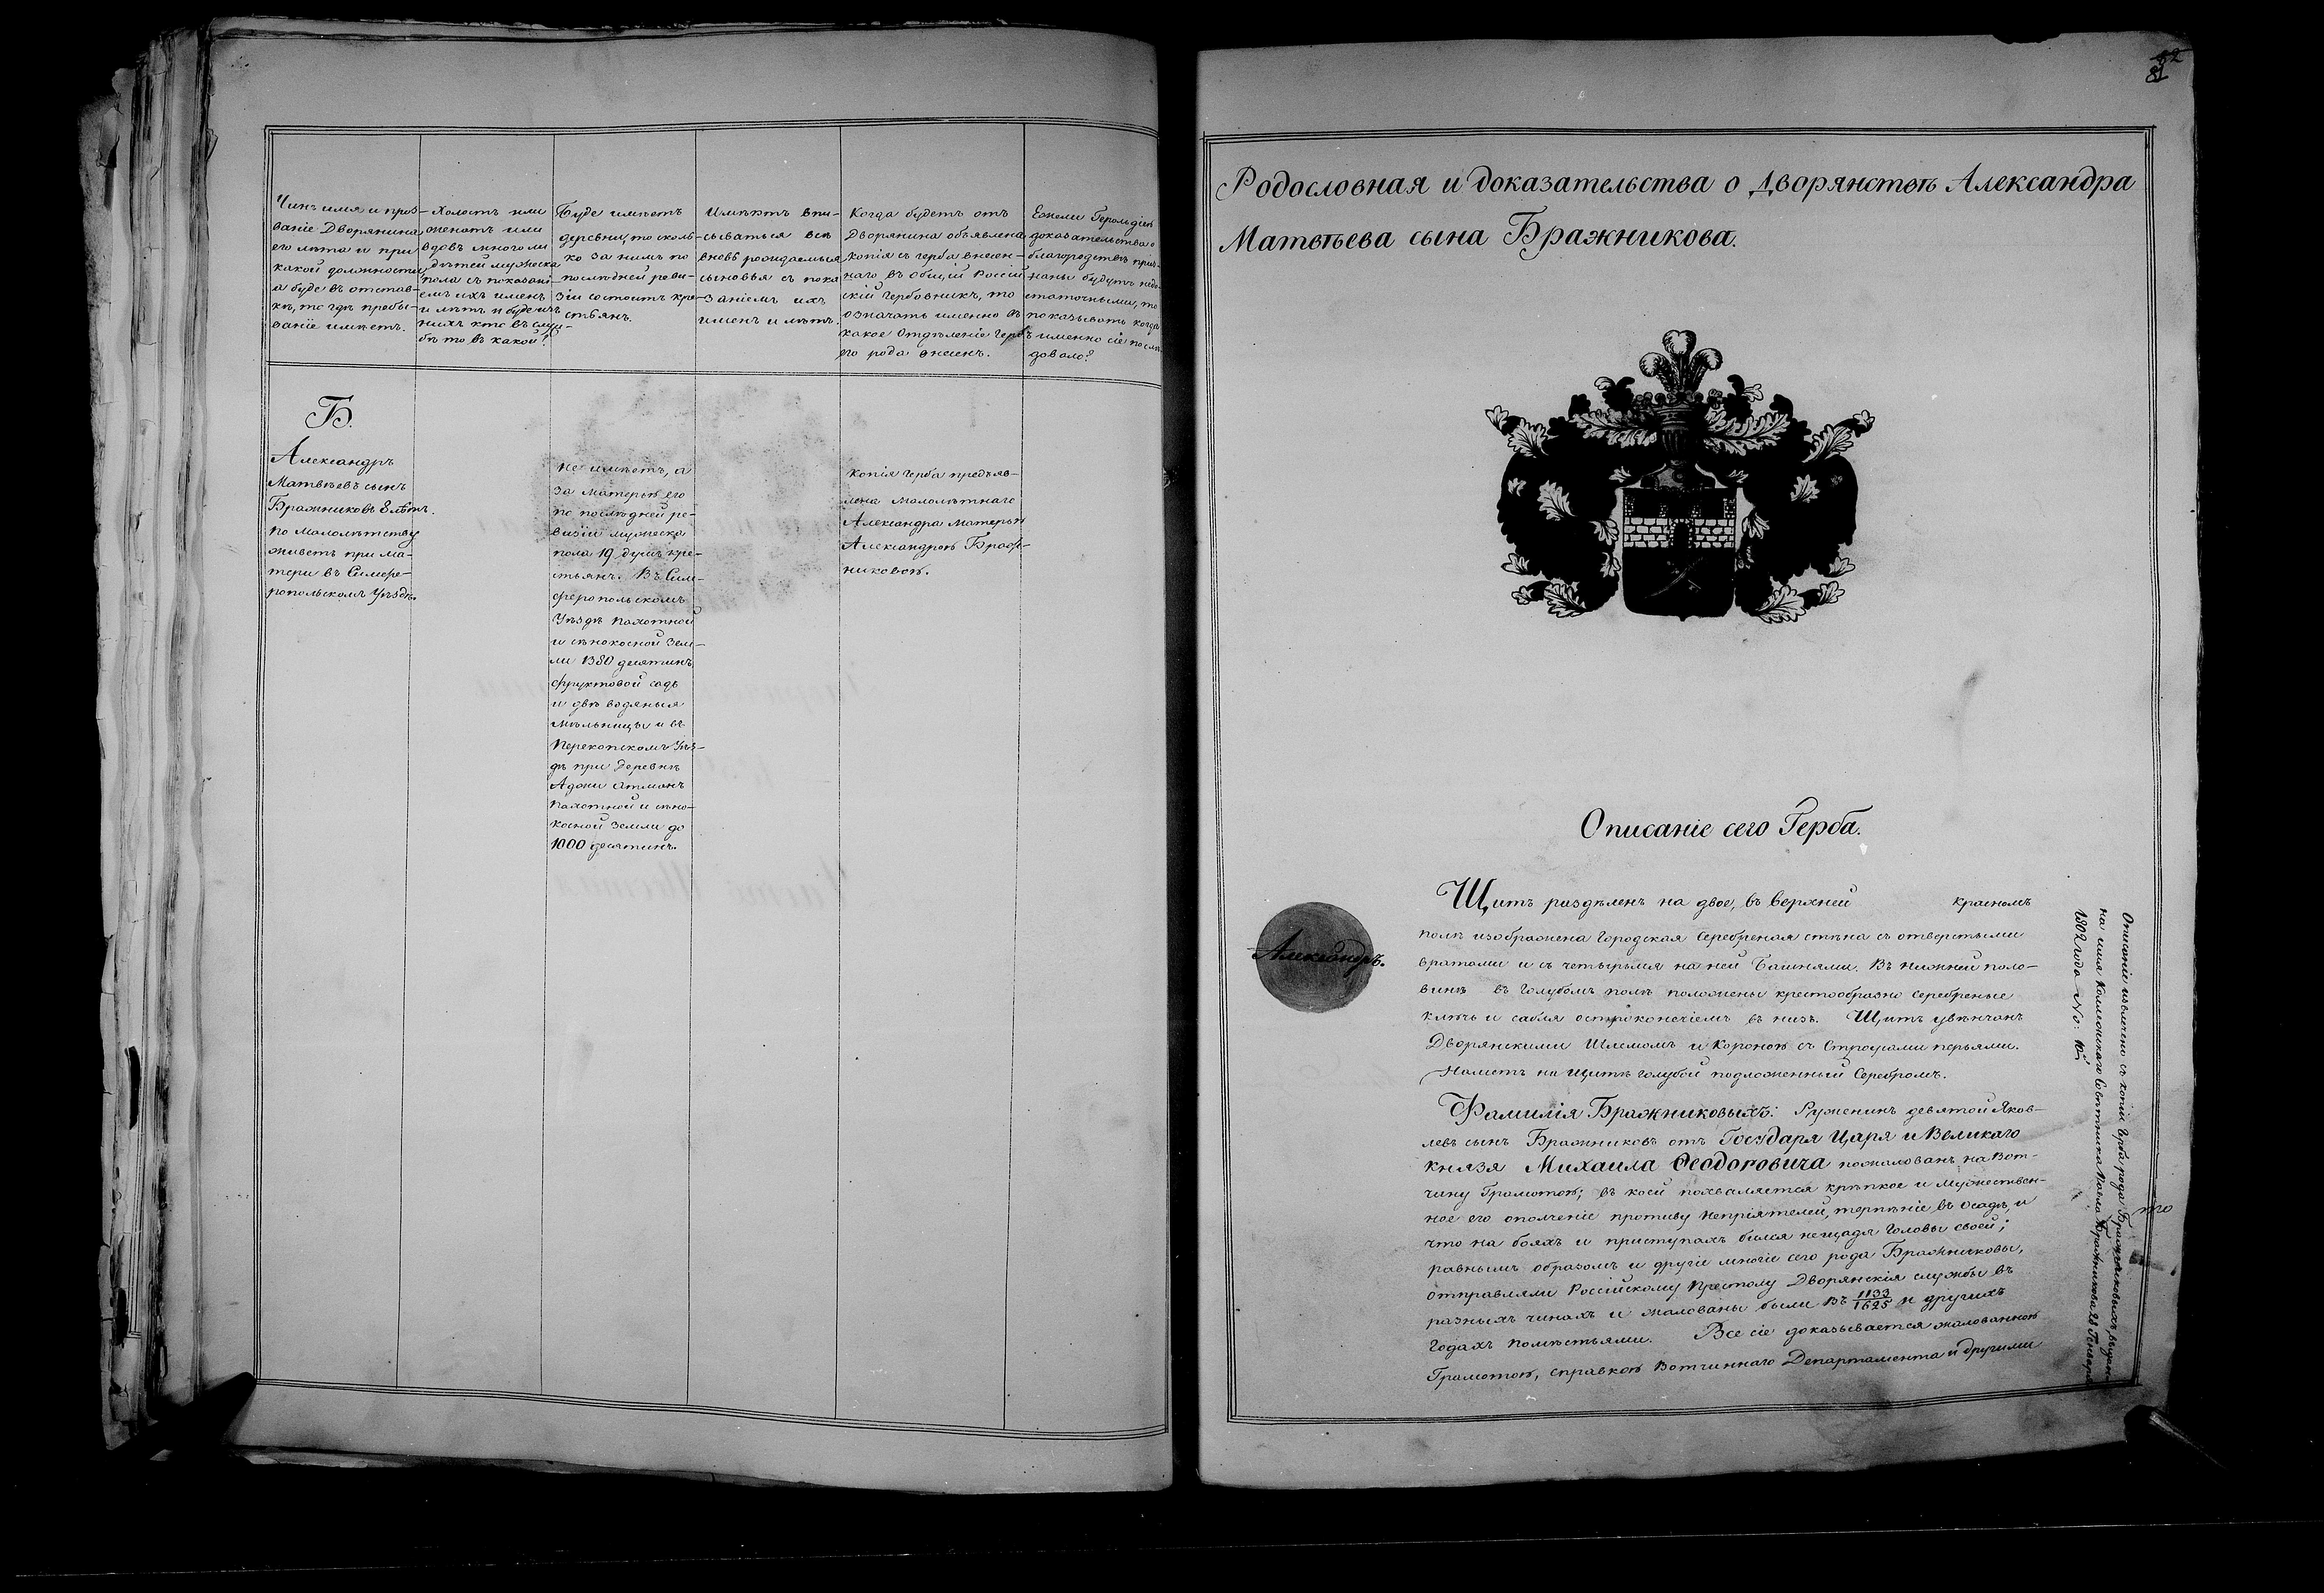 Чинъ имя и проз-
ваніе Дворянина,
его лѣта и при
какой должности,
а буде въ отстав-
кѣ, то гдѣ пребы-
ваніе имѣетъ.
Холостъ или
женатъ или
вдовъ много ли
дѣтей мужеска
пола съ показані-
емъ ихъ именъ
и лѣтъ и буде изъ
нихъ кто въ служ-
бѣ то въ какой?
Буде имѣетъ
деревни, то сколь-
ко за нимъ по
послѣдней реви-
зіи состоитъ кре-
стьянъ.
Имѣютъ впи-
сываться всѣ
вновь рождаемыя
сыновья съ пока
заніемъ ихъ
именъ и лѣтъ.
Когда будетъ отъ
Дворянина объявлена
копія съ герба внесен-
наго въ общій Россій
скій Гербовникъ, то
означать именно въ
какое Отдѣленіе Гербъ
его рода внесенъ.
Ежели Герольдіею
доказательства о
благородствѣ приз-
наны будутъ недо-
статочными, то
показывать когда
именно сіе послѣ-
довало?
Б.
Александръ
Матвѣевъ сынъ
Бражниковъ 8 лѣтъ.
по малолѣтству
живетъ при ма-
тери въ Симфе-
ропольскомъ Уѣздѣ.
не имѣетъ, а
за матерью его
по послѣдней ре-
визіи мужеска
пола 19 душъ кре-
стьянъ. Въ Сим-
феропольскомъ
Уѣздѣ пахотной
и сѣнокосной зем-
ли 1380 десятинъ
фруктовой садъ
и двѣ водяныя
мѣльницы и въ
Перекопскомъ Уѣз-
дѣ при деревнѣ
Аджи Атманъ
пахотной и сѣно-
косной земли до
1000 десятинъ.
Копія Герба предъяв-
лена малолѣтнаго
Александра матерью
Александрою Браж-
никовою.
Родословная и доказательства о дворянствѣ Александра
Матвѣева сына Бражникова.
Описаніе сего Герба.
Щитъ раздѣленъ на двое, въ верхней красномъ
полѣ изображена Городская серебреная стѣна съ отверстыми
вратами и съ четырьмя на ней Башнями. Въ нижней поло-
винѣ въ голубомъ полѣ положены крестообразно серебреные
ключь и сабля остроконечіемъ въ низъ. Щитъ увѣнчанъ
Дворянскими Шлемомъ и Короною съ Строусами перьями.
Наметъ на щитѣ голубой подложенный Серебромъ.
Александръ.
Фамилія Бражниковыхъ: Руженинъ девятой Яков-
левъ сынъ Бражниковъ отъ Государя Царя и Великаго
князя Михаила Ѳеодоровича пожалованъ на Вот-
чину Грамотою; въ коей похваляется крѣпкое и мужествен-
ное его ополченіе противу непріятелей, терпѣніе въ осадѣ, и
что на бояхъ и приступахъ бился нещадя Головы своей;
равнымъ образомъ и другіе многіе сего рода Бражниковы,
отправляли Россійскому Престолу Дворянскія службы въ
разныхъ чинахъ и жалованы были въ 1133/1625 и другихъ
Годахъ помѣстьями. Все сіе доказывается жалованною
Грамотою, справкою Вотчиннаго Департамента и другими
Описаніе извлечено съ копіи Герба рода Бражниковыхъ, выдан-
на имя Коллежскаго Совѣтника Павла Бражникова 28 Генваря
1802 года No: